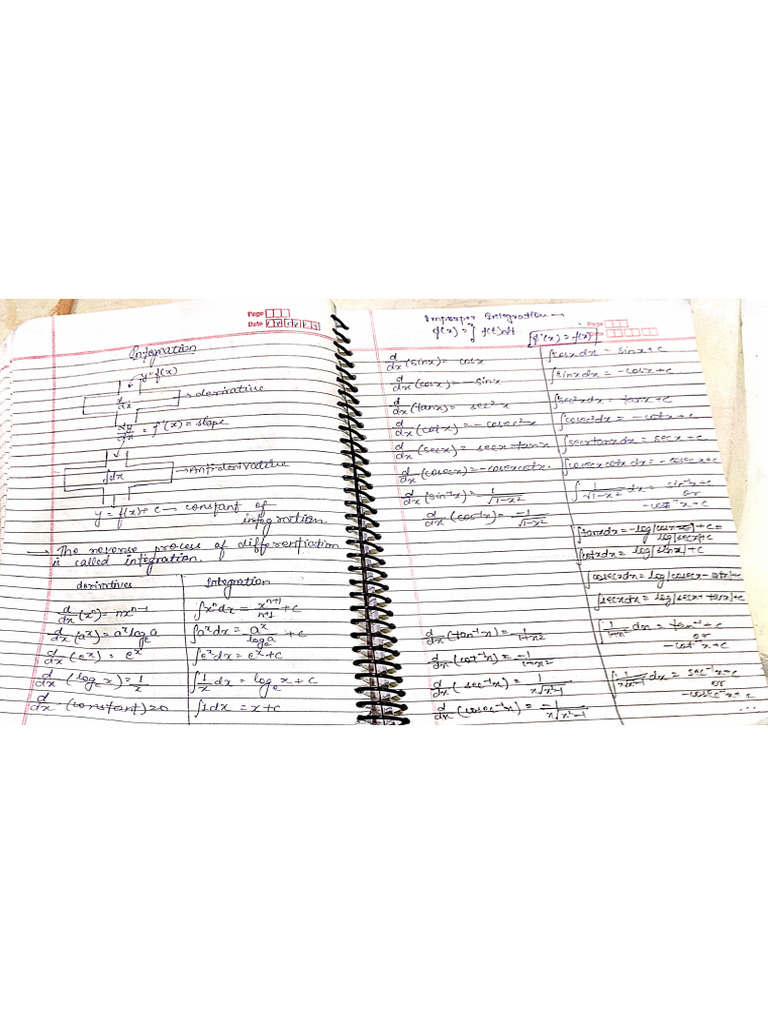 Page
Date
Integration
y=f(x)
d/dx → derivative
dy/dx = f'(x) = slope
∫dx → Anti-derivative
y = f(x) + c → constant of
integration.
→ The reverse process of differentiation
is called integration.
derivatives Integration
d/dx (xⁿ) = nxⁿ⁻¹ ∫xⁿdx = xⁿ⁺¹/n+1 + c
d/dx (aˣ) = aˣ logₑa ∫aˣdx = aˣ/logₑa + c
d/dx (eˣ) = eˣ ∫eˣdx = eˣ + c
d/dx (logₑx) = 1/x ∫1/x dx = logₑx + c
d/dx (constant) = 0 ∫1dx = x + c
Improper Integration →
Page
f'(x) = f(x)
d/dx (sinx) = cosx ∫cosxdx = sinx + c
d/dx (cosx) = -sinx ∫sinxdx = -cosx + c
d/dx (tanx) = sec²x ∫sec²xdx = tanx + c
d/dx (cotx) = -cosec²x ∫cosec²xdx = -cotx + c
d/dx (secx) = secx tanx ∫secxtanxdx = secx + c
d/dx (cosecx) = -cosecxcotx. ∫cosecx cotx dx = -cosecx + c
d/dx (sin⁻¹x) = 1/√1-x² ∫1/√1-x² dx = sin⁻¹x + c
or
-cos⁻¹x + c
d/dx (cos⁻¹x) = -1/√1-x²
∫tanxdx = -log|cosx| + c =
log|secx| + c
∫cotxdx = log|sinx| + c
∫cosecxdx = log|cosecx - cotx| + c
∫secxdx = log|secx + tanx| + c
d/dx (tan⁻¹x) = 1/1+x² ∫1/1+x² dx = tan⁻¹x + c
or
-cot⁻¹x + c
d/dx (cot⁻¹x) = -1/1+x²
d/dx (sec⁻¹x) = 1/x√x²-1 ∫1/x√x²-1 dx = sec⁻¹x + c
or
-cosec⁻¹x + c
d/dx (cosec⁻¹x) = -1/x√x²-1
...